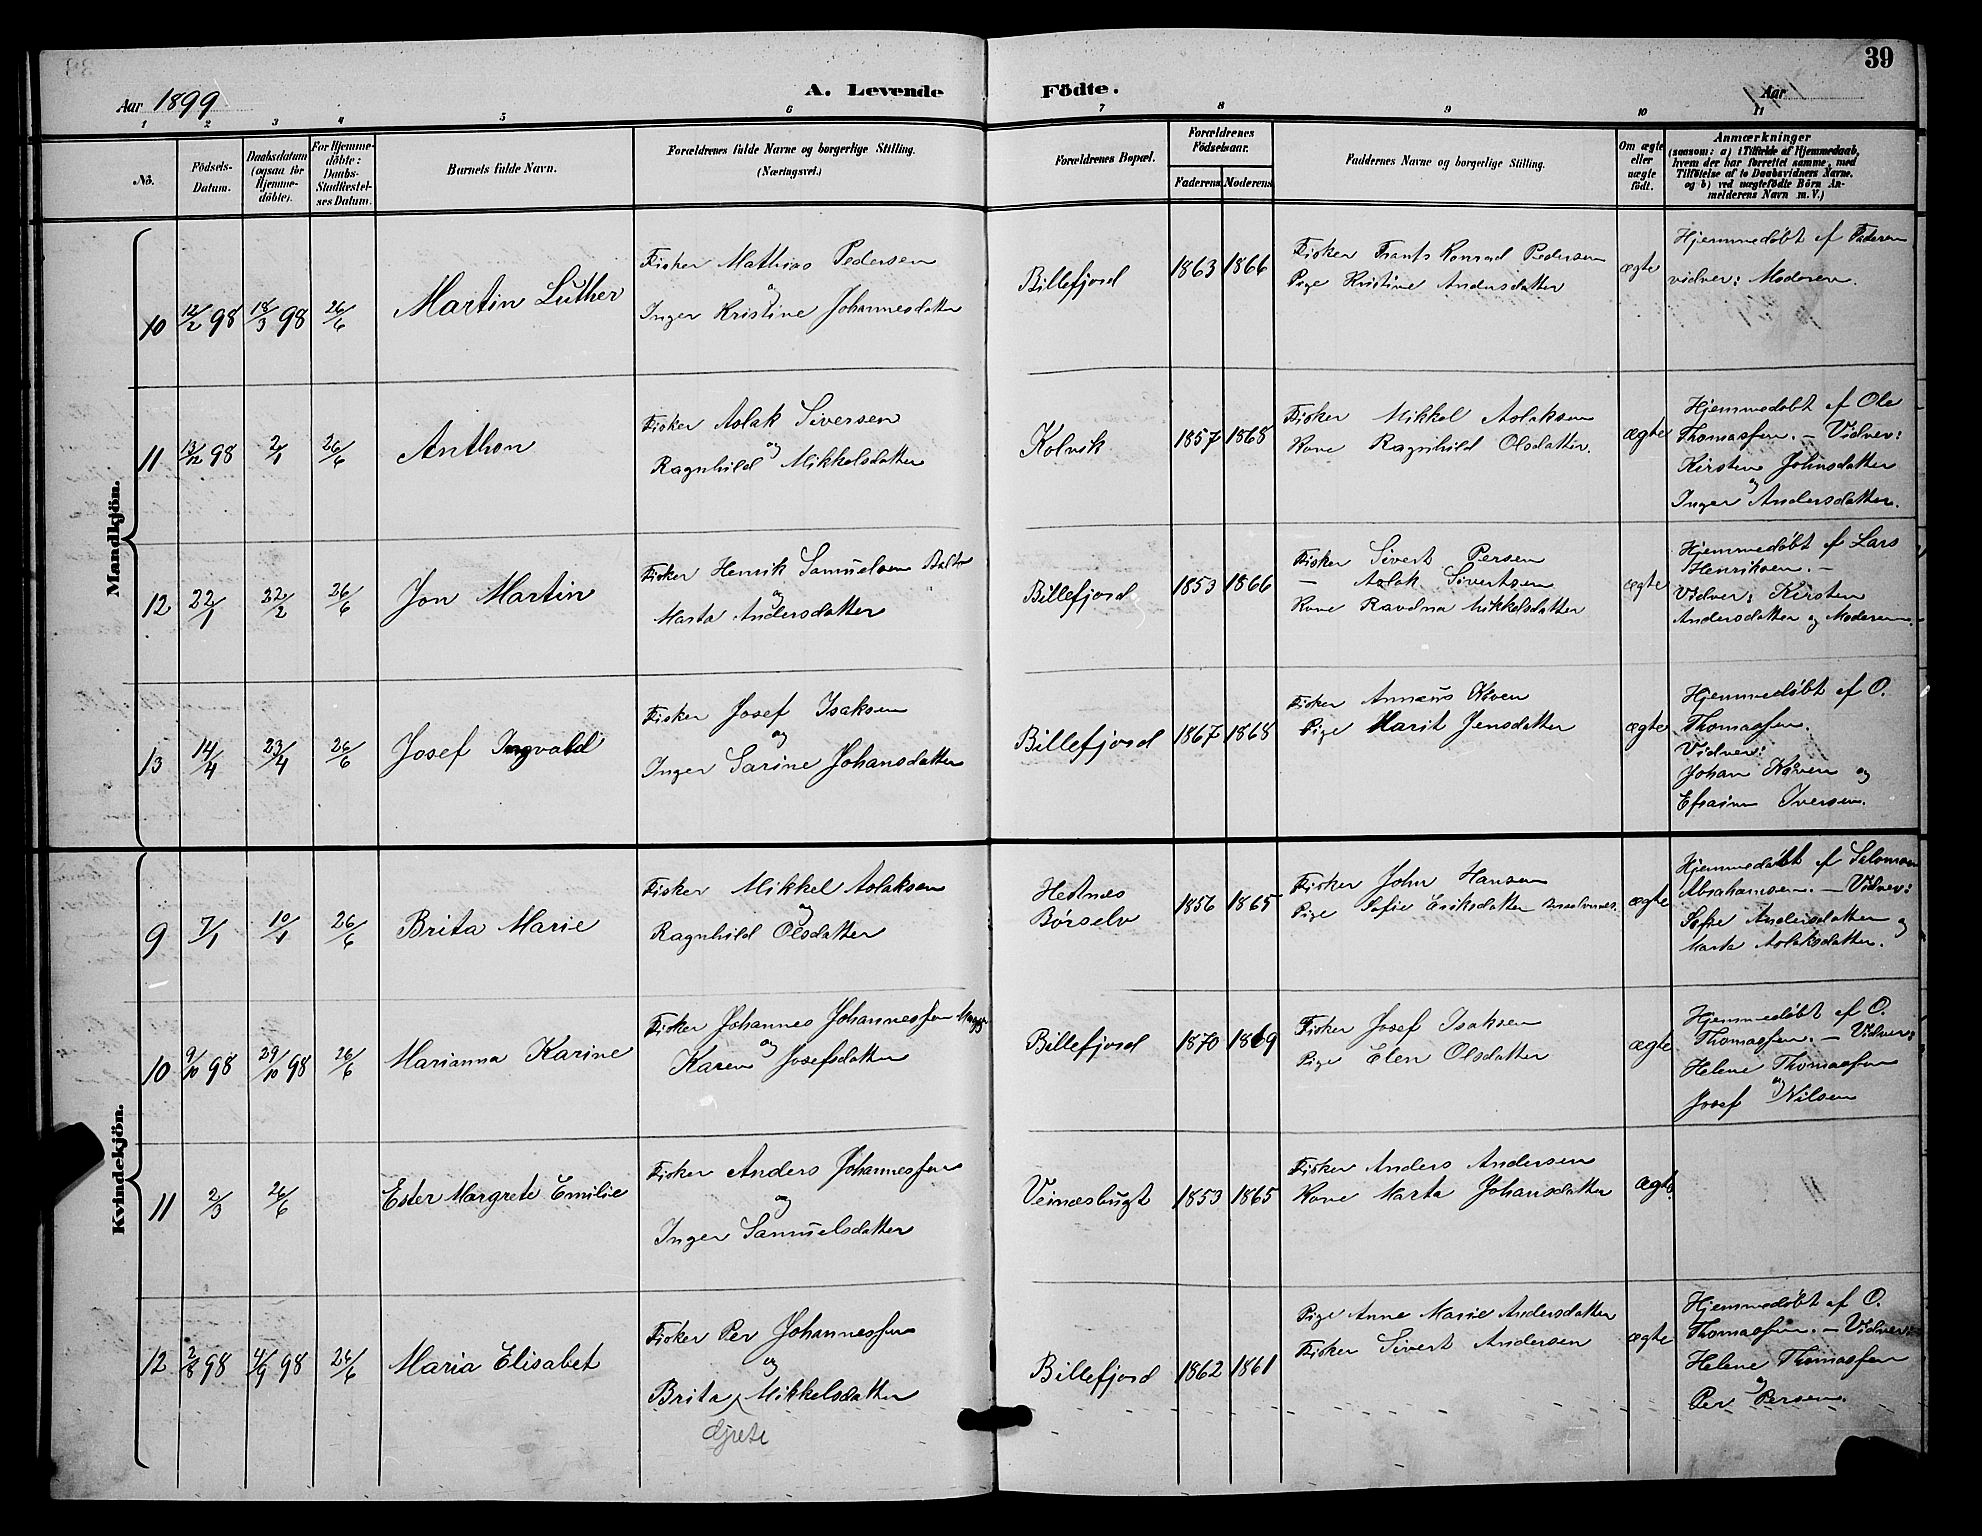 39
Aar 1899 A. Levende Födte. Aar
1 2 3 4 5 6 7 8 9 10 11
No.
Födsels-Datum.
Daabsdatum (ogsaa for Hjemme-döbte).
For Hjemme-döbte: Daabs-Stadfæstel-ses Datum.
Barnets fulde Navn.
Forældrenes fulde Navne og borgerlige Stilling. (Næringsvei.)
Forældrenes Bopæl.
Forældrenes Födselsaar.
Faderens Moderens
Faddernes Navne og borgerlige Stilling.
Om ægte eller uægte födt.
Anmærkninger
(saasom: a) i Tilfælde af Hjemmedaab, hvem der har forrettet samme, med Tilföielse af to Daabsvidners Navne, og b) ved uægtefödte Börn An-melderens Navn m.V.)
Mandkjön.
10 12/2 98 18/3 98 26/6 Martin Luther
Fisker Mathias Pedersen
og
Inger Kristine Johannesdatter
Billefjord 1863 1866
Fisker Frants Konrad Pedersen
Pige Kristine Andersdatter
ægte
Hjemmedøbt af Faderen
vidner: Moderen.
11 13/12 98 2/1 26/6 Anthon
Fisker Aslak Siversen
og
Ragnhild Mikkelsdatter
Kolvik 1857 1868
Fisker Mikkel Aslaksen
Kone Ragnhild Olsdatter.
ægte
Hjemmedøbt af Ole
Thomassen. – Vidner:
Kirsten Johnsdatter
og
Inger Andersdatter.
12 22/1 22/2 26/6 Jon Martin
Fisker Henrik Samuelsen
og
Marta Andersdatter
Billefjord 1853 1866
Fisker Sivert Persen
— Aslak Sivertsen
Kone Ravdna Mikkelsdatter
ægte
Hjemmedøbt af Lars
Henriksen. –
Vidner: Kirsten
Andersdatter og Moderen.
13 14/4 23/4 26/6 Josef Ingvald
Fisker Josef Isaksen
og
Inger Sarine Johansdatter
Billefjord 1867 1868
Fisker Annæus Kåven
Pige Marit Jensdatter
ægte
Hjemmedøbt af O.
Thomassen.
Vidner:
Johan Kåven og
Efraim Iversen.
Kvindekjön.
9 7/1 10/1 26/6 Brita Marie
Fisker Mikkel Aslaksen
og
Ragnhild Olsdatter
Hestnes
Børselv 1856 1865
Fisker John Hansen
Pige Sofie Eriksdatter
ægte
Hjemmedøbt af Salomon
Abrahamsen. – Vidner:
Sofie Andersdatter og
Marta Aslaksdatter.
10 9/10 98 29/10 98 26/6 Marianna Karine
Fisker Johannes Johannessen
og
Karen Josefsdatter
Billefjord 1870 1869
Fisker Josef Isaksen
Pige Elen Olsdatter
ægte
Hjemmedøbt af O.
Thomassen. – Vidner:
Helene Thomassen
og
Josef Nilsen
11 2/3 26/6 Ester Margrete Emilie
Fisker Anders Johannessen
og
Inger Samuelsdatter
Veinæsbugt 1853 1865
Fisker Anders Andersen
Kone Marta Johansdatter
ægte
12 2/8 98 4/9 98 26/6 Maria Elisabet
Fisker Per Johannessen
og
Brita Mikkelsdatter
Grete
Billefjord 1862 1861
Pige Anne Marie Andersdatter
Fisker Sivert Andersen
ægte
Hjemmedøbt af O.
Thomassen. – Vidner:
Helene Thomassen
og
Per Persen.